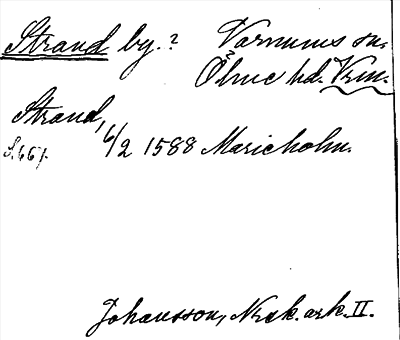 Strand by.? Varnums sn.
Ölme hd. Vrm.
Strand, 6/2 1588 Marieholm.
S. 661.
Johansson, Nrak. ark. II.